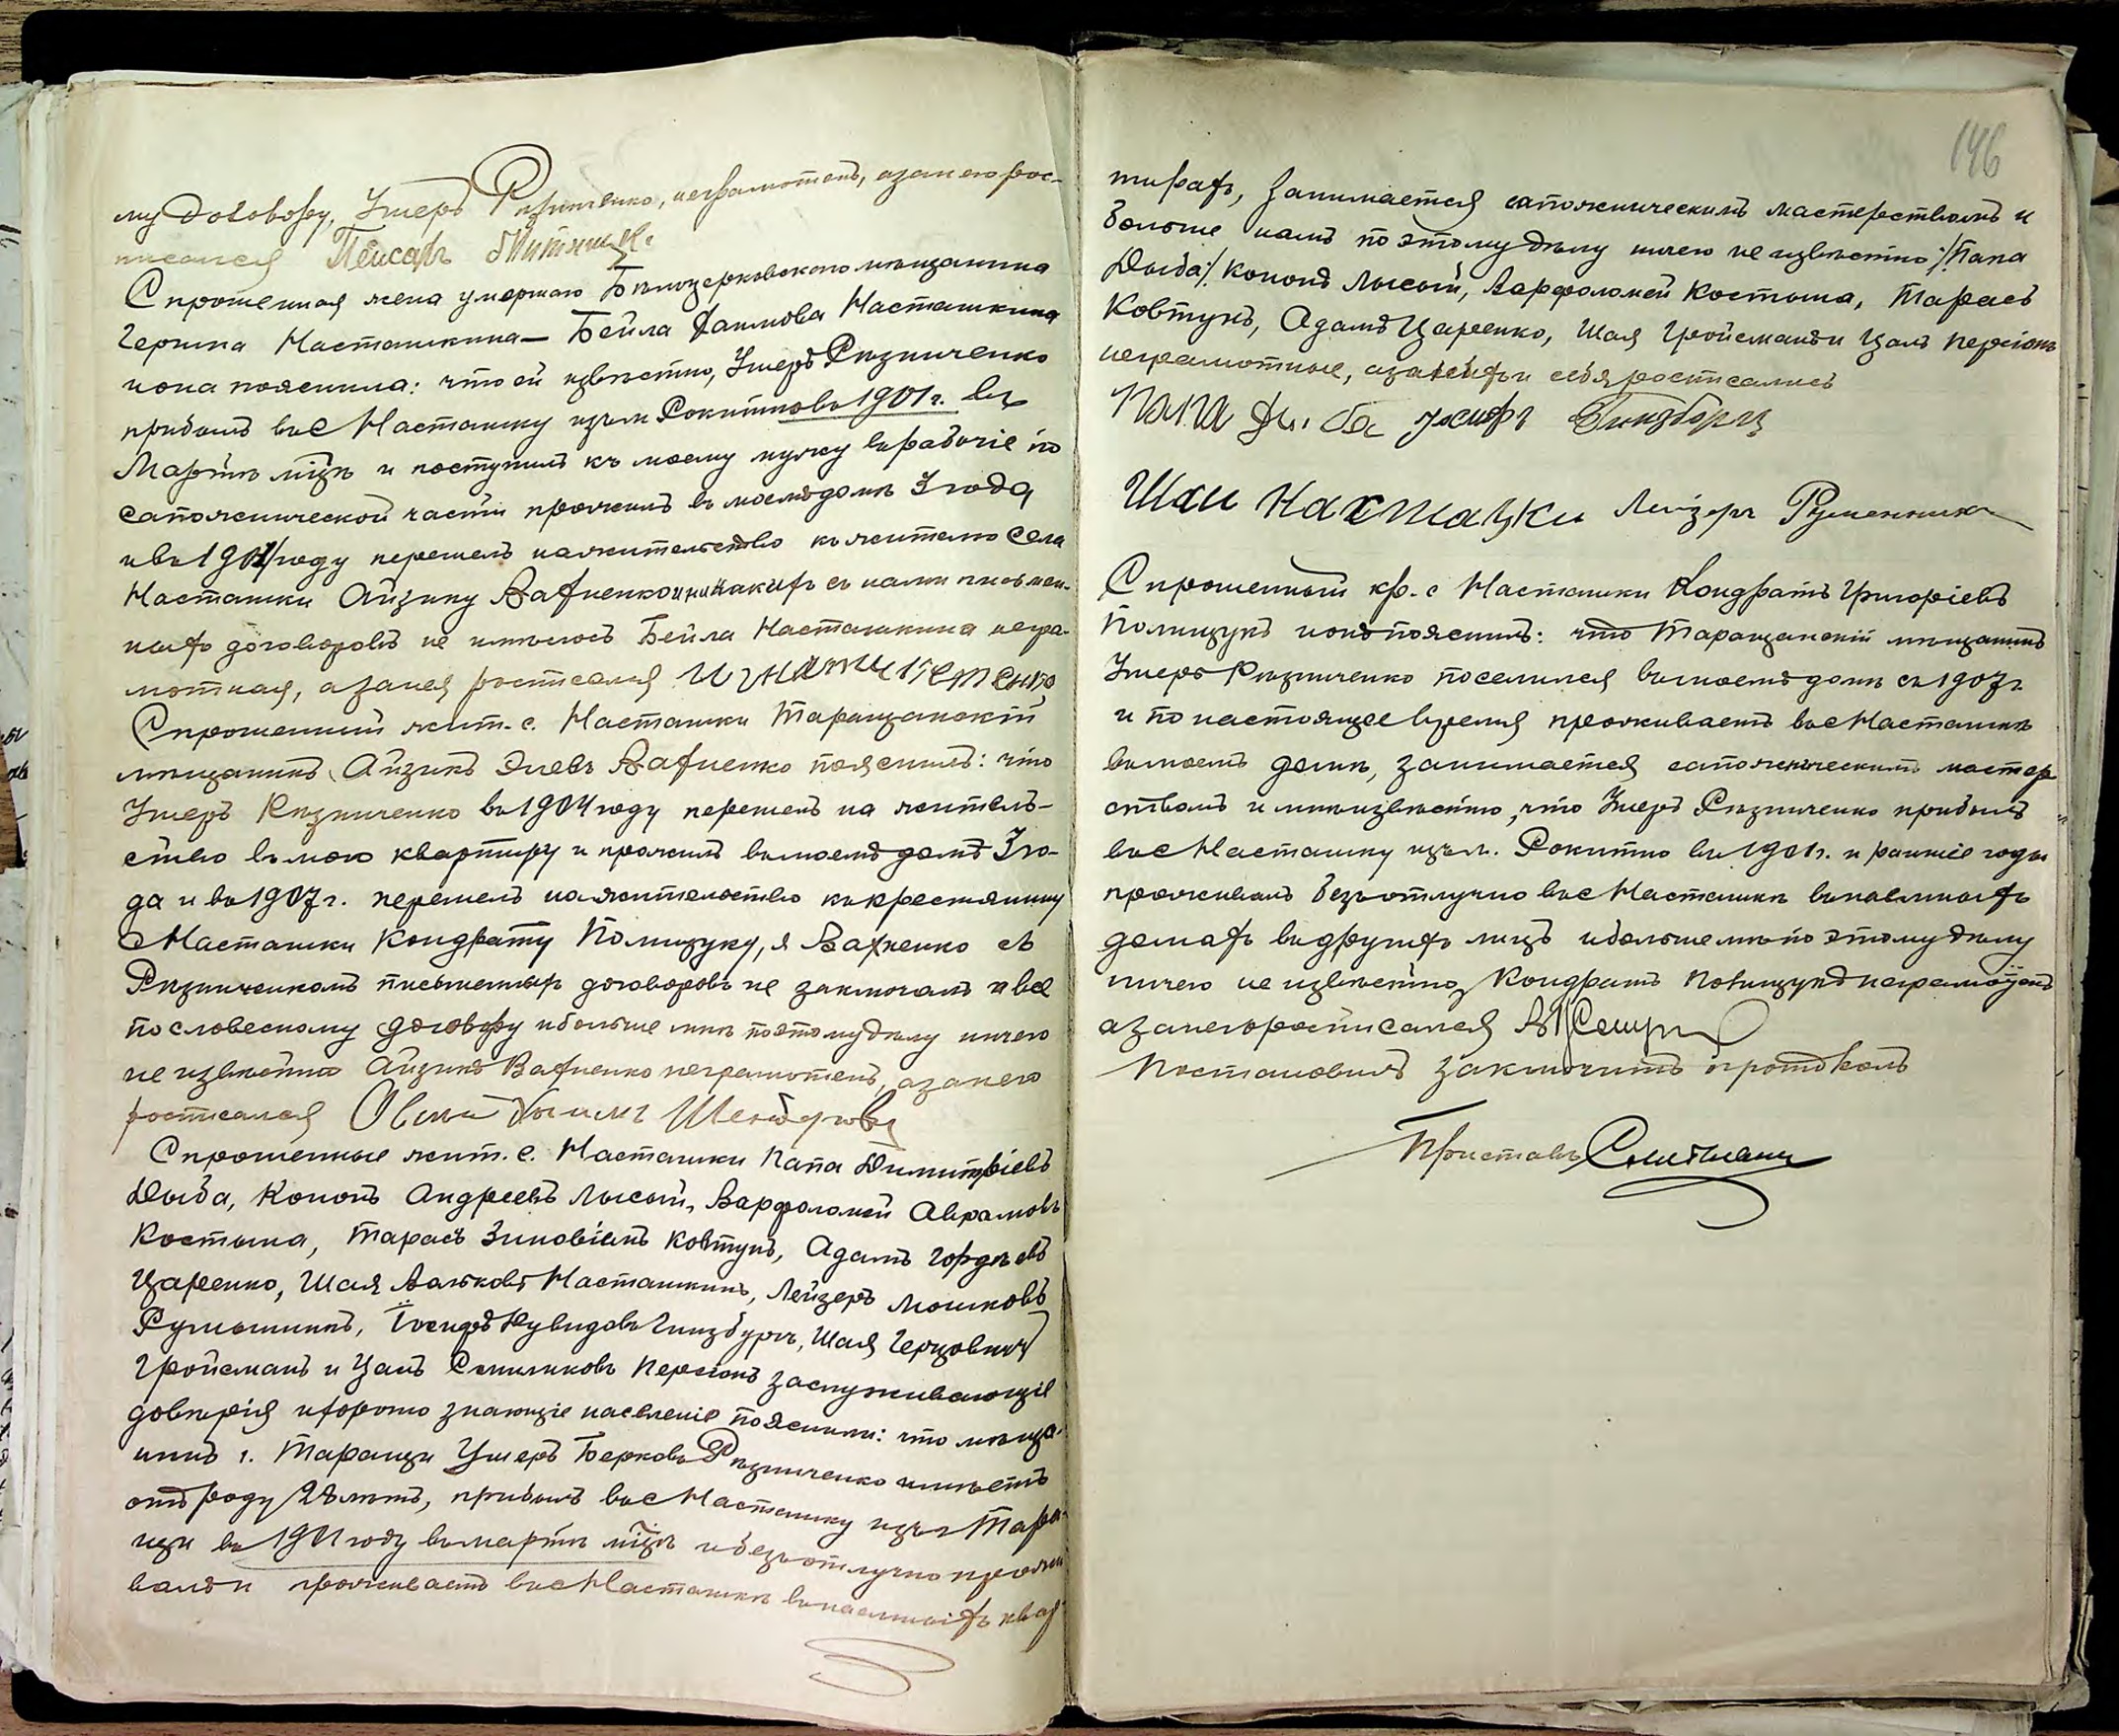 му договору, Умеръ Резниченко, неграмотенъ, а за него рос-
писался Пейсахъ
Спрошенная жена умершаго Бѣлоцерковскаго мѣщанина
Гершка Насташкина — Бейла Хаимова Насташкина
и она пояснила: что ей извѣстно, Умеръ Рѣзниченко
прибылъ въ с Насташку изъ м Рокитновъ 1901 г. въ
Мартѣ мцѣ и поступилъ къ моему мужу въ рабочіе по
сапожнической части прожилъ въ моемъ домѣ 3 года
и въ 1904 году перешелъ на жительство къ жителю села
Насташки Айзику Вахненко и никакихъ съ нами письмен-
ныхъ договоровъ не имѣлось Бейла Насташкина негра-
мотная, а за нея росписался
Спрошенный жит. с. Насташки Таращанскій
мѣщанинъ Айзикъ Элевъ Вахненко пояснилъ: что
Умеръ Рѣзниченко въ 1904 году перешелъ на житель-
ство въ мою квартиру и прожилъ въ моемъ домѣ 3 го-
да и въ 1907 г. перешелъ на жительство къ крестянину
с Насташки Кондрату Полищуку, я Вахненко съ
Рѣзниченкомъ письменныхъ договоровъ не заключалъ а все
по словесному договору и больше мнѣ по этому дѣлу ничего
не извѣстно Айзикъ Вахненко неграмотенъ, а за него
росписался Овсій Хаимъ
Спрошенные жит. с. Насташки Папа Димитріевъ
Дыба, Кононъ Андреевъ Лысый, Варфоломей Аврамовъ
Костыша, Тарасъ Зиновіевъ Ковтунъ, Адамъ Гордѣевъ
Царенко, Шая Волковъ Насташкинъ, Лейзеръ Мошковъ
Румянникъ, Іосифъ Гинзбургъ, Шая Герцовичъ
Гройсманъ и Цаль Персіонъ заслуживающіе
довѣрія и хорошо знающіе населеніе пояснили: что мѣща-
нинъ г. Таращи Умеръ Берковъ Рѣзниченко имѣетъ
отъ роду 28 лѣтъ, прибылъ въ с Насташку изъ г Тара-
щи въ 1901 году въ мартѣ мцѣ и безъотлучно прожи-
валъ и проживаетъ въ с Насташкѣ въ наемныхъ квар-
146
тирахъ, занимается сапожническимъ мастерствомъ и
больше намъ по этому дѣлу ничего не извѣстно /:Папа
Дыба:/ Кононъ Лысый, Варфоломей Костыша, Тарасъ
Ковтунъ, Адамъ Царенко, Шая Гройсманъ и Цаль Персіонъ
неграмотные, а за нихъ и себя росписались
Папа Ды ба Іосифъ Гинзбургъ
Шаи Насташки Лейзеръ Румянникъ
Спрошенный кр. с Насташки Кондратъ Григоріевъ
Полищукъ и онъ пояснилъ: что Таращанскій мѣщанинъ
Умеръ Рѣзниченко поселился въ моемъ домѣ съ 1907 г
и по настоящее время проживаетъ въ с Насташкѣ
въ моемъ домѣ, занимается сапожническимъ мастер
ствомъ и мнѣ извѣстно, что Умеръ Рѣзниченко прибылъ
въ с Насташку изъ м. Рокитно въ 1901 г. и ранніе годы
проживалъ безъотлучно въ с Насташкѣ въ наемныхъ
домахъ въ другихъ лицъ и больше мнѣ по этому дѣлу
ничего не извѣстно Кондратъ Полищукъ неграмотенъ
а за него росписался
Постановилъ заключить протоколъ
Приставъ